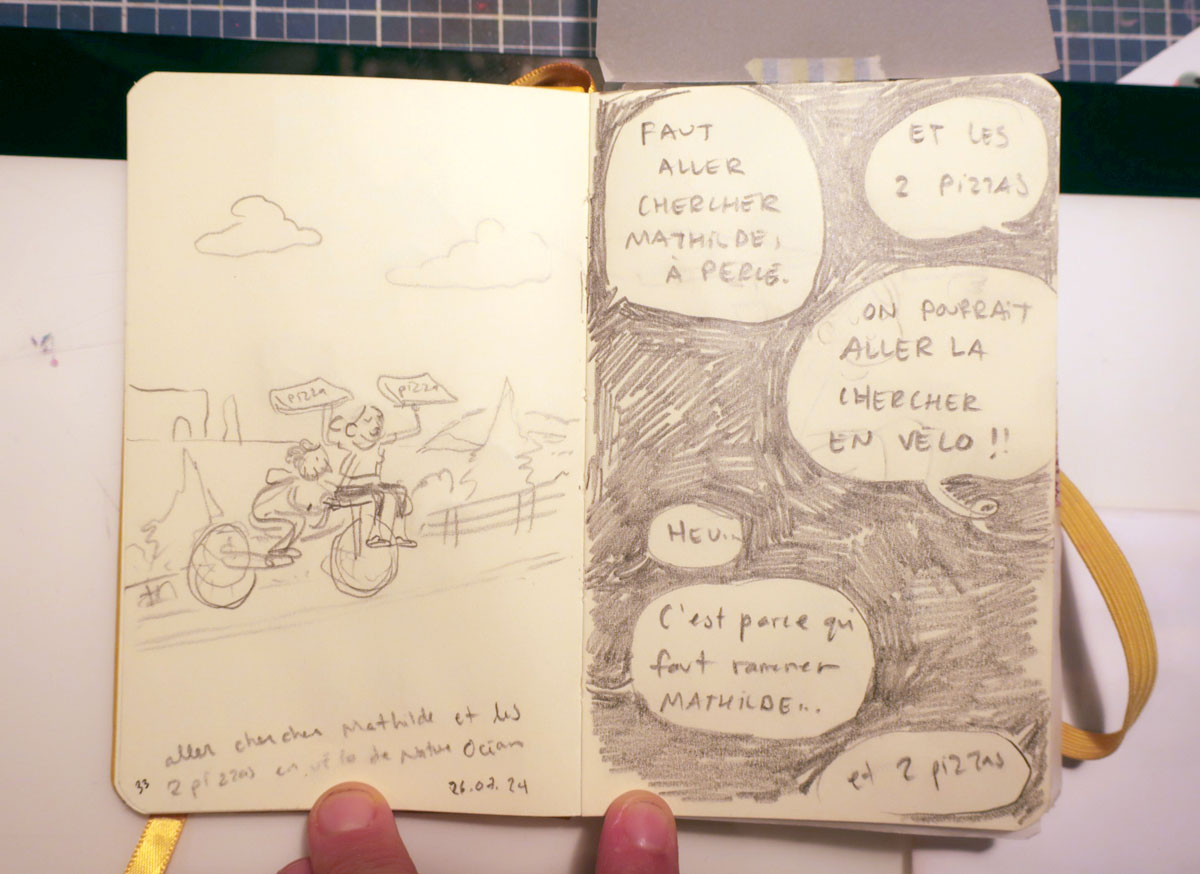 pizza
pizza
aller chercher Mathilde et les
2 pizzas en vélo de Notre Océan
33
26.07.24
FAUT
ALLER
CHERCHER
MATHILDE,
À PERLE.
ET LES
2 PIZZAS
ON POURRAIT
ALLER LA
CHERCHER
EN VÉLO !!
HEU...
C'est parce qui
faut ramener
MATHILDE...
et 2 pizzas